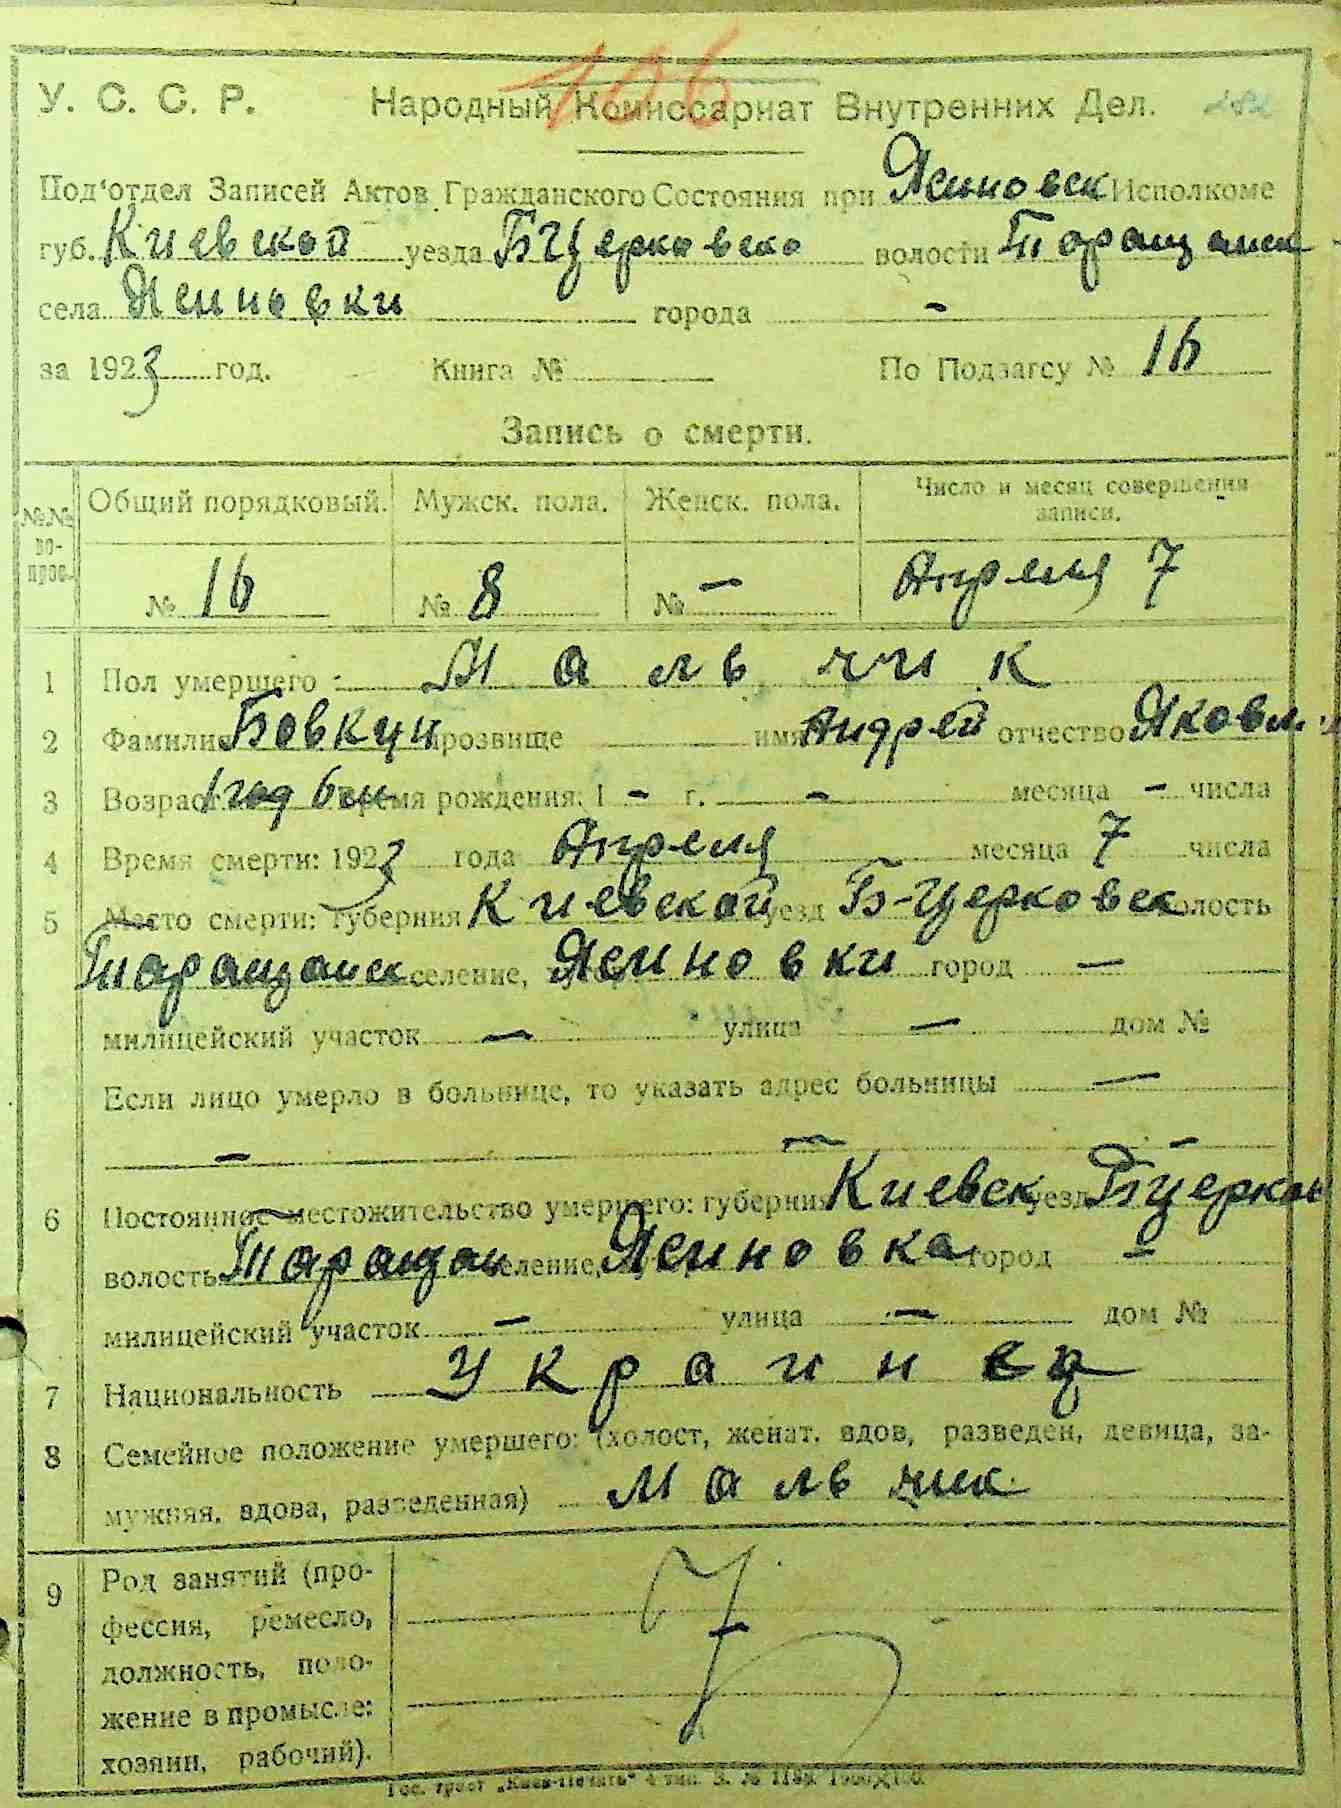 106
У. С. С. Р. Народный Комиссариат Внутренних Дел.
Под'отдел Записей Актов Гражданского Состояния при Ясиновск Исполкоме
губ. Киевской уезда Б Церковско волости Таращанск
села Ясиновки города -
за 1923 год. Книга № По Подзагсу № 16
Запись о смерти.
№№ вопрос. Общий порядковый. Мужск. пола. Женск. пола. Число и месяц совершения записи.
№ 16 № 8 № - Апреля 7
1 Пол умершего: Мальчик
2 Фамилия Бовкун прозвище имя Андрей отчество Яковл.
3 Возраст 1 год 6 м время рождения: 1 - г. - месяца - числа
4 Время смерти: 1923 года Апреля месяца 7 числа
5 Место смерти: губерния Киевской уезд Б-Церковск волость
Таращанск селение, Ясиновки город -
милицейский участок - улица - дом №
Если лицо умерло в больнице, то указать адрес больницы -
- - -
6 Постоянное местожительство умершего: губерния Киевск уезд Б Церков
волость Таращан селение, Ясиновка город -
милицейский участок - улица - дом №
7 Национальность Украинец
8 Семейное положение умершего: (холост, женат. вдов, разведен, девица, за-
мужняя, вдова, разведенная) Мальчик
9 Род занятий (про-
фессия, ремесло,
должность, поло-
жение в промысле:
хозяин, рабочий).
-
Гос. трест „Киев-Печать" 4 тип. З. №